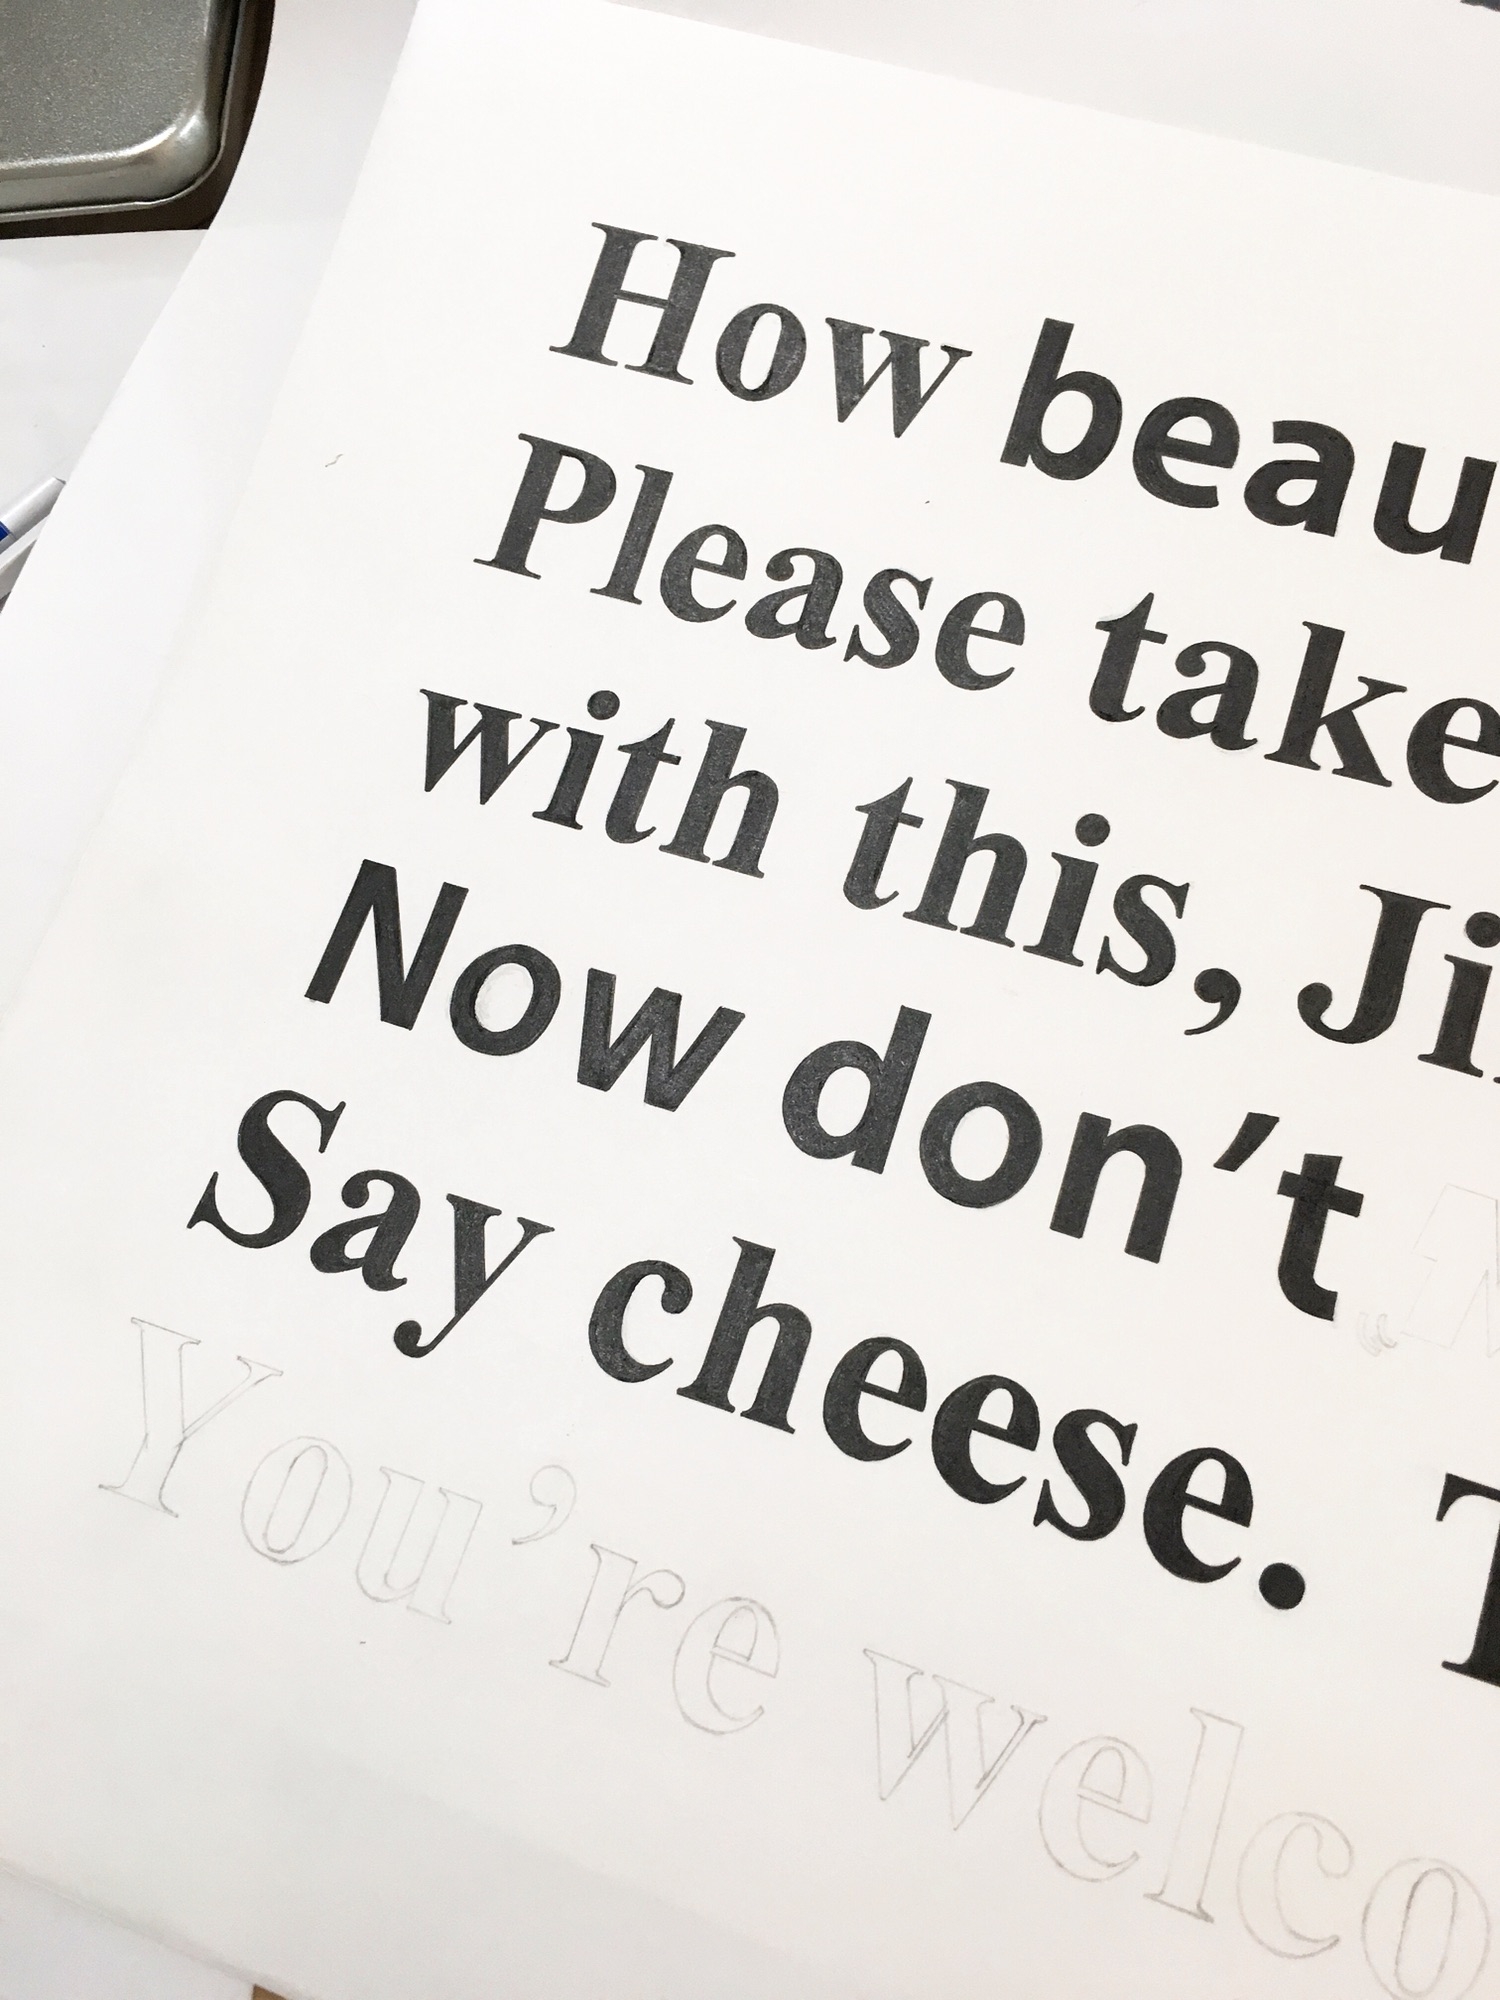 How beau
Please take
with this, Ji
Now don't
Say cheese. T
You're welco